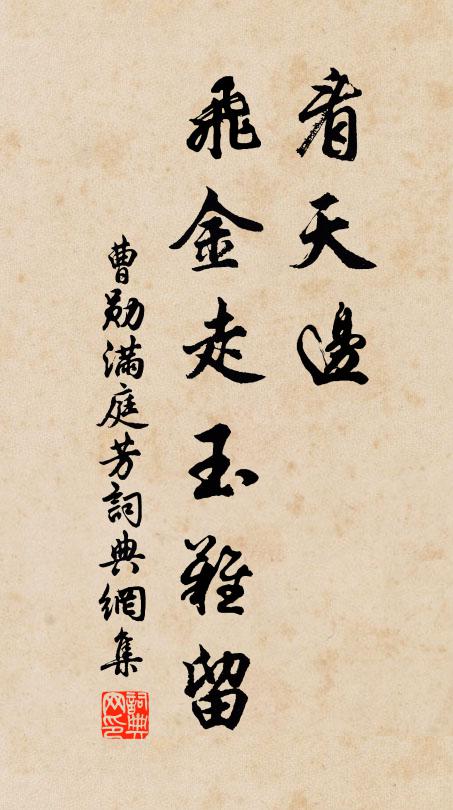 看天邊
飛金走玉難留
曹勛滿庭芳詞典網集
詞典
网印